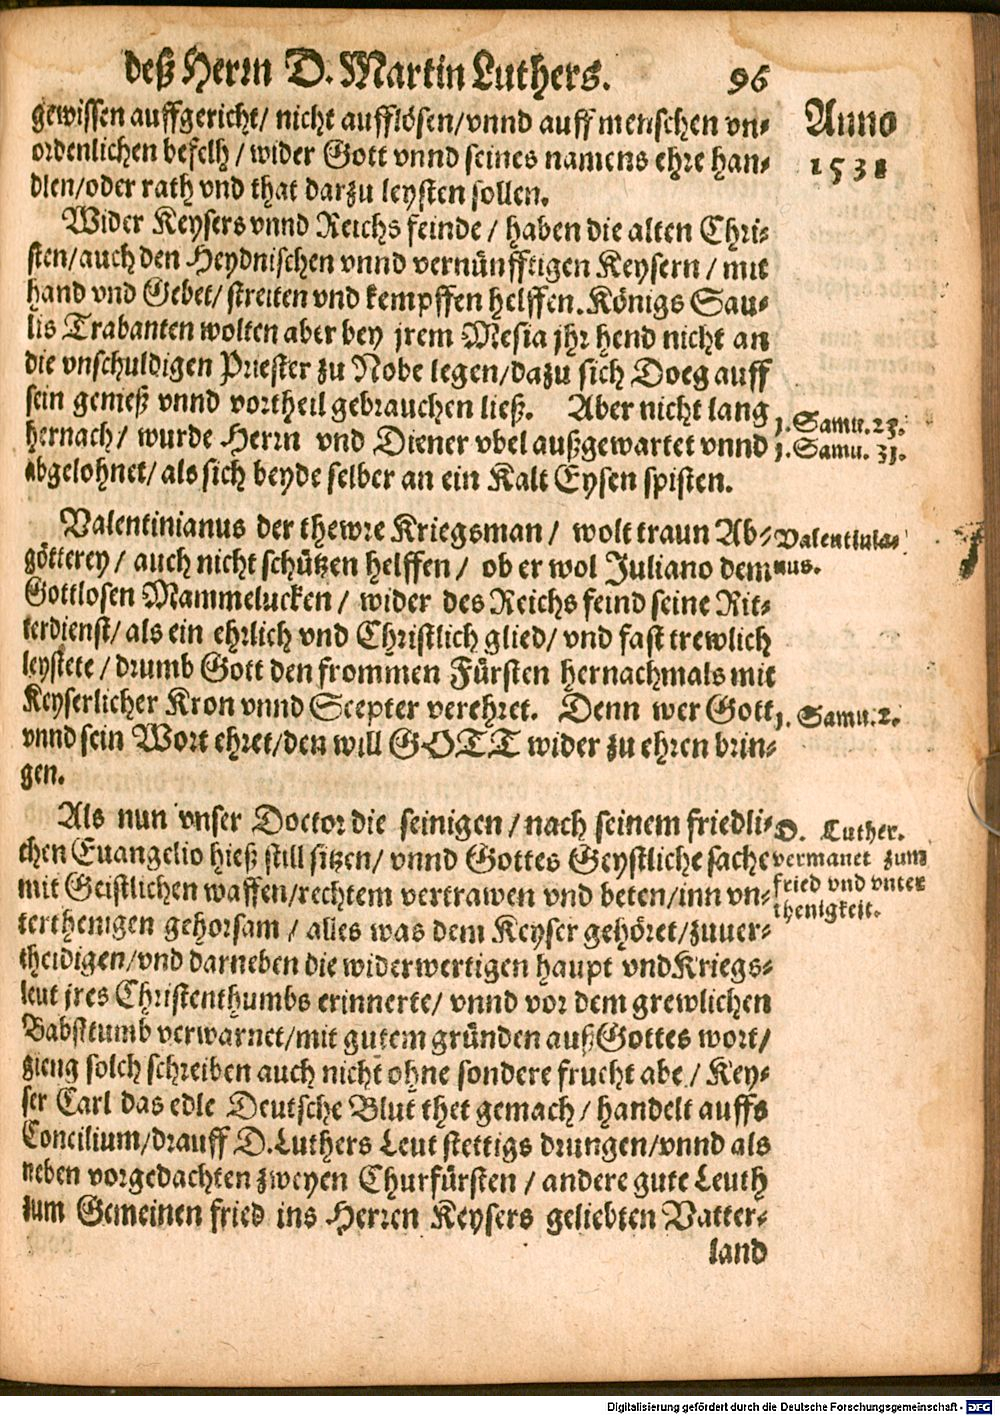 deß Herrn D. Martin Luthers. 96
gewissen auffgericht/ nicht aufflösen/ vnnd auff menschen vn-
ordenlichen befelh / wider Gott vnnd seines namens ehre han-
dlen/oder rath vnd that darzu leysten sollen.
Anno
1531
Wider Keysers vnnd Reichs feinde / haben die alten Chri-
sten/auch den Heydnischen vnnd vernünfftigen Keysern / mit
hand vnd Gebet/ streiten vnd kempffen helffen. Königs Sau-
lis Trabanten wolten aber bey jrem Mesia jhr hend nicht an
die vnschuldigen Priester zu Nobe legen/dazu sich Doeg auff
sein genieß vnnd vortheil gebrauchen ließ. Aber nicht lang
hernach/ wurde Herrn vnd Diener vbel außgewartet vnnd
abgelohnet/ als sich beyde selber an ein Kalt Eysen spisten.
1. Samu. 23.
1. Samu. 31.
Valentinianus der thewre Kriegsman / wolt traun Ab-
götterey / auch nicht schützen helffen / ob er wol Juliano dem
Gottlosen Mammelucken / wider des Reichs feind seine Rit-
terdienst/ als ein ehrlich vnd Christlich glied/ vnd fast trewlich
leystete / drumb Gott den frommen Fürsten hernachmals mit
Keyserlicher Kron vnnd Scepter verehret. Denn wer Gott
vnnd sein Wort ehret/den will GOTT wider zu ehren brin-
gen.
Valentinia-
nus.
1. Samu. 2.
Als nun vnser Doctor die seinigen / nach seinem friedli-
chen Euangelio hieß still sitzen/ vnnd Gottes Geystliche sache
mit Geistlichen waffen/rechtem vertrawen vnd beten/inn vn-
terthenigen gehorsam / alles was dem Keyser gehöret/zuuer-
theidigen/vnd darneben die widerwertigen haupt vnd Kriegs-
leut jres Christenthumbs erinnerte/ vnnd vor dem grewlichen
Babstumb verwarnet/mit gutem gründen auß Gottes wort/
gieng solch schreiben auch nicht ohne sondere frucht abe/ Key-
ser Carl das edle Deutsche Blut thet gemach / handelt auffs
Concilium/drauff D. Luthers Leut stettigs drungen/vnnd als
neben vorgedachten zweyen Churfürsten / andere gute Leuth
zum Gemeinen fried ins Herren Keysers geliebten Vatter-
land
D. Luther.
vermanet zum
fried vnd vnter
thenigkeit.
Digitalisierung gefördert durch die Deutsche Forschungsgemeinschaft - DFG